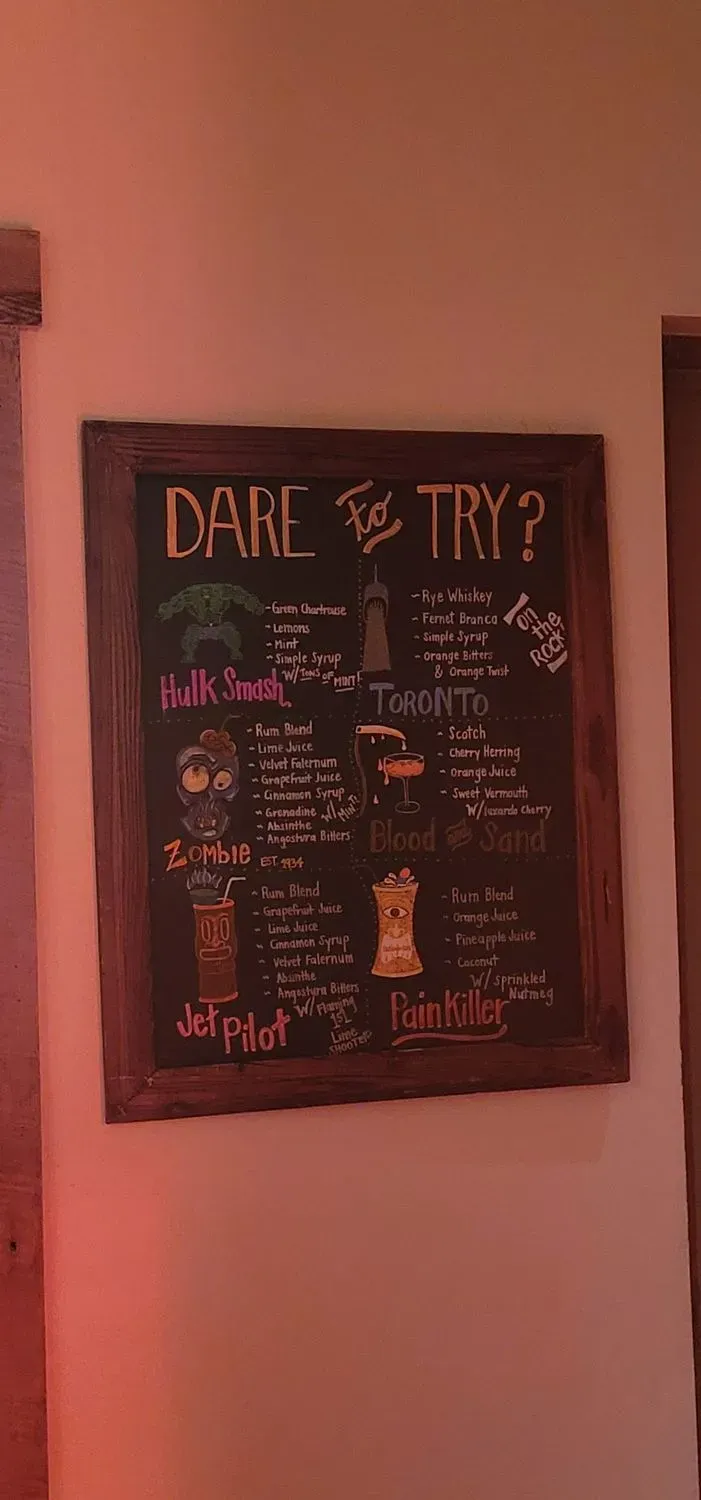 DARE to TRY?
- Green Chartreuse
- Lemons
- Mint
- Simple Syrup
W/ TONS OF MINT!
Hulk Smash
- Rye Whiskey
- Fernet Branca
- Simple Syrup
- Orange Bitters
& Orange Twist
on
the
ROCK!
TORONTO
- Rum Blend
- Lime Juice
- Velvet Falernum
- Grapefruit Juice
- Cinnamon Syrup
- Grenadine
- Absinthe
- Angostura Bitters
W/ MINT!
Zombie EST. 1934
- Scotch
- Cherry Herring
- Orange Juice
- Sweet Vermouth
W/ luxardo Cherry
Blood and Sand
- Rum Blend
- Grapefruit Juice
- Lime Juice
- Cinnamon Syrup
- Velvet Falernum
- Absinthe
- Angostura Bitters
W/ Flaming
151
Lime
SHOOTER
Jet Pilot
- Rum Blend
- Orange Juice
- Pineapple Juice
- Coconut
W/ Sprinkled
Nutmeg
PainKiller